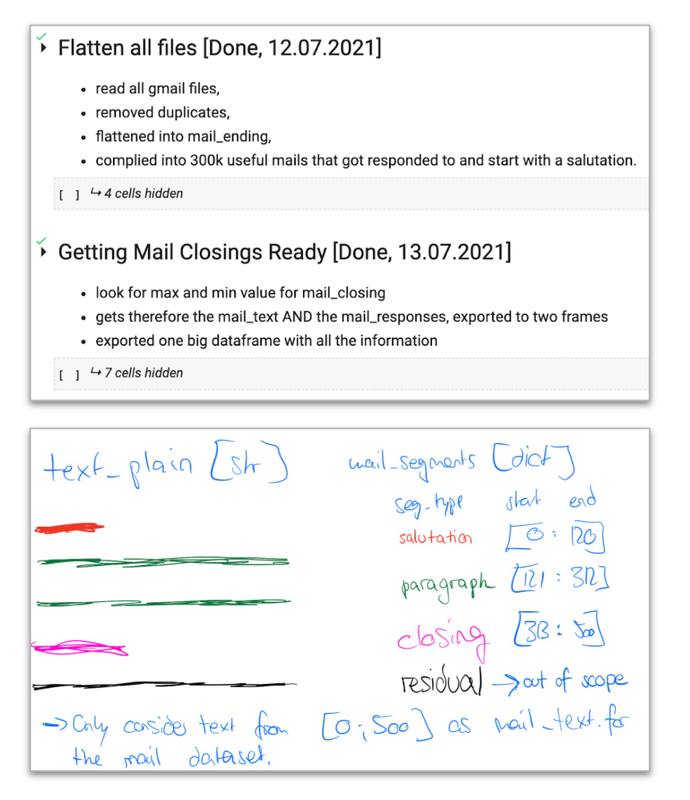 Flatten all files [Done, 12.07.2021]
• read all gmail files,
• removed duplicates,
• flattened into mail_ending,
• complied into 300k useful mails that got responded to and start with a salutation.
[ ] ↳ 4 cells hidden
Getting Mail Closings Ready [Done, 13.07.2021]
• look for max and min value for mail_closing
• gets therefore the mail_text AND the mail_responses, exported to two frames
• exported one big dataframe with all the information
[ ] ↳ 7 cells hidden
text_plain [str]
mail_segments [dict]
seg_type start end
salutation [0 : 120]
paragraph [121 : 312]
closing [313 : 500]
residual → out of scope
→ Only consider text from [0 ; 500] as mail_text for
the mail dataset.